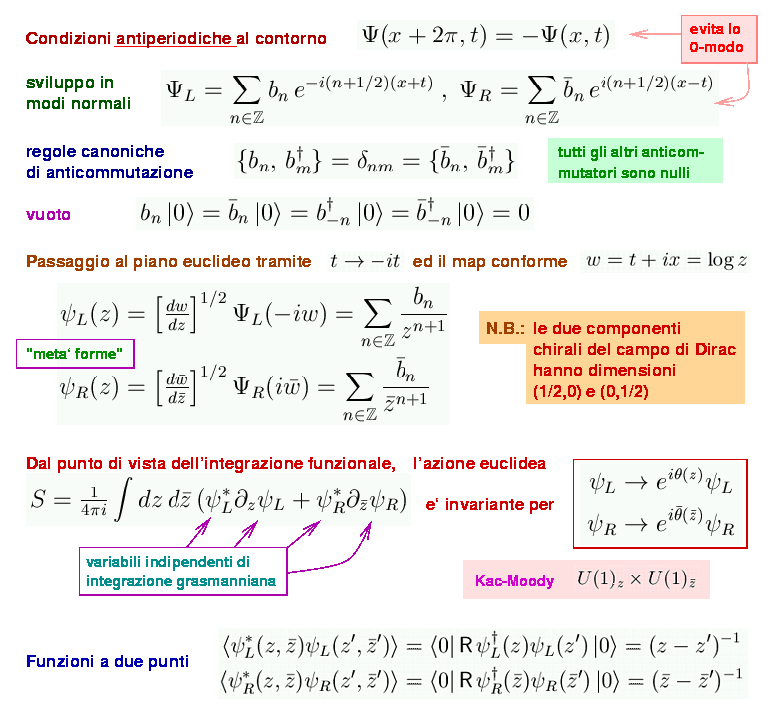 Condizioni antiperiodiche al contorno Ψ(x + 2π, t) = −Ψ(x, t) evita lo
0-modo
sviluppo in
modi normali
Ψ_L = ∑_{n∈ℤ} b_n e^{−i(n+1/2)(x+t)} , Ψ_R = ∑_{n∈ℤ} b̄_n e^{i(n+1/2)(x−t)}
regole canoniche
di anticommutazione
{b_n, b_m^†} = δ_{nm} = {b̄_n, b̄_m^†}
tutti gli altri anticom-
mutatori sono nulli
vuoto b_n |0⟩ = b̄_n |0⟩ = b_{−n}^† |0⟩ = b̄_{−n}^† |0⟩ = 0
Passaggio al piano euclideo tramite t → −it ed il map conforme w = t + ix = log z
ψ_L(z) = [dw/dz]^{1/2} Ψ_L(−iw) = ∑_{n∈ℤ} b_n/z^{n+1}
"meta‘ forme"
ψ_R(z) = [dw̄/dz̄]^{1/2} Ψ_R(iw̄) = ∑_{n∈ℤ} b̄_n/z̄^{n+1}
N.B.: le due componenti
chirali del campo di Dirac
hanno dimensioni
(1/2,0) e (0,1/2)
Dal punto di vista dell'integrazione funzionale, l'azione euclidea
S = 1/4πi ∫ dz dz̄ (ψ_L^* ∂_z ψ_L + ψ_R^* ∂_z̄ ψ_R) e‘ invariante per
ψ_L → e^{iθ(z)} ψ_L
ψ_R → e^{iθ̄(z̄)} ψ_R
variabili indipendenti di
integrazione grasmanniana
Kac-Moody U(1)_z × U(1)_z̄
Funzioni a due punti
⟨ψ_L^*(z, z̄)ψ_L(z′, z̄′)⟩ = ⟨0| R ψ_L^†(z)ψ_L(z′) |0⟩ = (z − z′)^{−1}
⟨ψ_R^*(z, z̄)ψ_R(z′, z̄′)⟩ = ⟨0| R ψ_R^†(z̄)ψ_R(z̄′) |0⟩ = (z̄ − z̄′)^{−1}